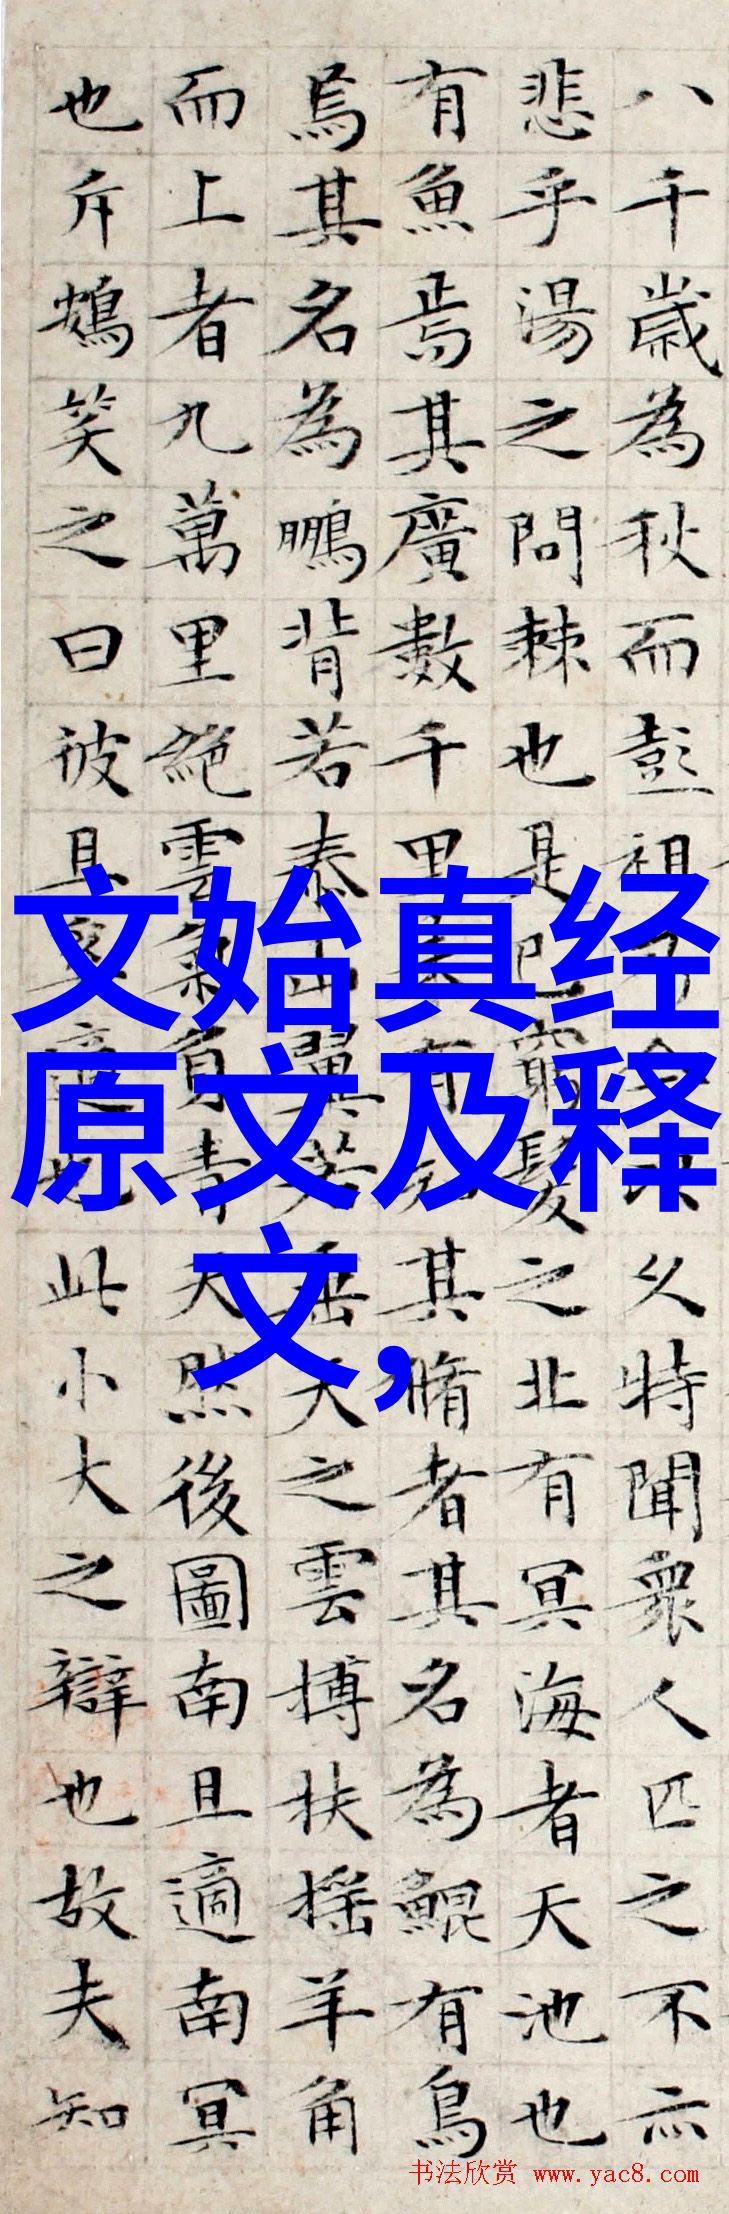 八千歲為秋而彭祖乃今以久特聞衆人匹之不亦
悲乎湯之問棘也是已窮髮之北有冥海者天池也
有魚焉其廣數千里未有知其脩者其名為鯤有鳥
焉其名為鵬背若泰山翼若垂天之雲摶扶搖羊角
而上者九萬里絕雲氣負青天然後圖南且適南冥
也斥鴳笑之曰彼且奚適也此小大之辯也故夫知
文始真经
原文及释
文,
书法欣赏 www.yac8.com